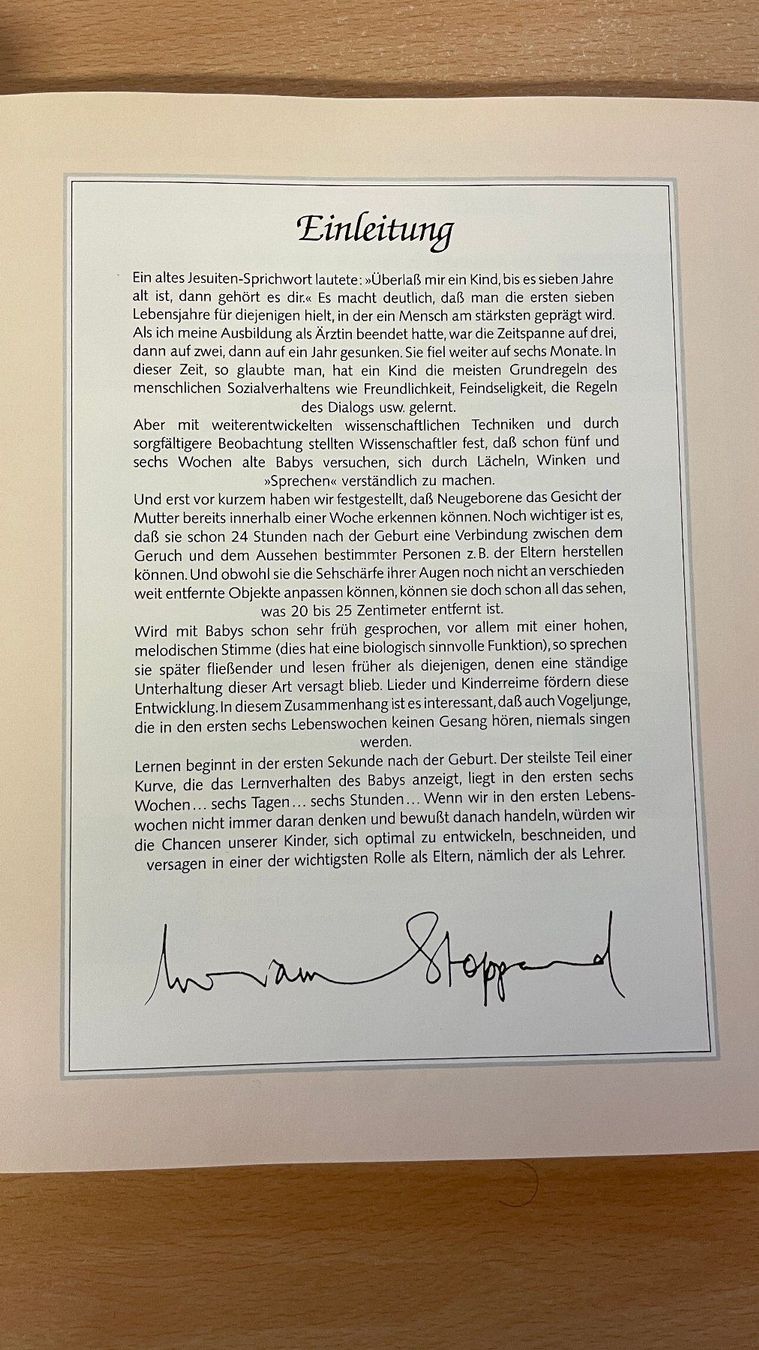 Einleitung
Ein altes Jesuiten-Sprichwort lautete: »Überlaß mir ein Kind, bis es sieben Jahre
alt ist, dann gehört es dir.« Es macht deutlich, daß man die ersten sieben
Lebensjahre für diejenigen hielt, in der ein Mensch am stärksten geprägt wird.
Als ich meine Ausbildung als Ärztin beendet hatte, war die Zeitspanne auf drei,
dann auf zwei, dann auf ein Jahr gesunken. Sie fiel weiter auf sechs Monate. In
dieser Zeit, so glaubte man, hat ein Kind die meisten Grundregeln des
menschlichen Sozialverhaltens wie Freundlichkeit, Feindseligkeit, die Regeln
des Dialogs usw. gelernt.
Aber mit weiterentwickelten wissenschaftlichen Techniken und durch
sorgfältigere Beobachtung stellten Wissenschaftler fest, daß schon fünf und
sechs Wochen alte Babys versuchen, sich durch Lächeln, Winken und
»Sprechen« verständlich zu machen.
Und erst vor kurzem haben wir festgestellt, daß Neugeborene das Gesicht der
Mutter bereits innerhalb einer Woche erkennen können. Noch wichtiger ist es,
daß sie schon 24 Stunden nach der Geburt eine Verbindung zwischen dem
Geruch und dem Aussehen bestimmter Personen z.B. der Eltern herstellen
können. Und obwohl sie die Sehschärfe ihrer Augen noch nicht an verschieden
weit entfernte Objekte anpassen können, können sie doch schon all das sehen,
was 20 bis 25 Zentimeter entfernt ist.
Wird mit Babys schon sehr früh gesprochen, vor allem mit einer hohen,
melodischen Stimme (dies hat eine biologisch sinnvolle Funktion), so sprechen
sie später fließender und lesen früher als diejenigen, denen eine ständige
Unterhaltung dieser Art versagt blieb. Lieder und Kinderreime fördern diese
Entwicklung. In diesem Zusammenhang ist es interessant, daß auch Vogeljunge,
die in den ersten sechs Lebenswochen keinen Gesang hören, niemals singen
werden.
Lernen beginnt in der ersten Sekunde nach der Geburt. Der steilste Teil einer
Kurve, die das Lernverhalten des Babys anzeigt, liegt in den ersten sechs
Wochen... sechs Tagen... sechs Stunden... Wenn wir in den ersten Lebens-
wochen nicht immer daran denken und bewußt danach handeln, würden wir
die Chancen unserer Kinder, sich optimal zu entwickeln, beschneiden, und
versagen in einer der wichtigsten Rolle als Eltern, nämlich der als Lehrer.
Miriam Stoppard